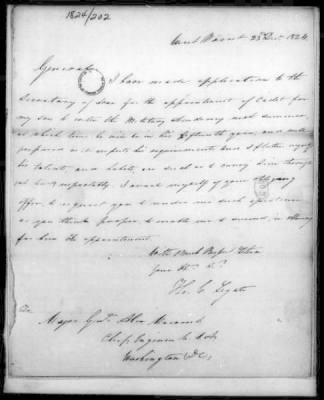 1824/202
23d Decr. 1824
General,
I have made application to the
Secretary of War for the appointment of Cadet for
my son to enter the Military Academy next summer
at which time he will be in his fifteenth year, and well
prepared as it respects his requirements and I flatter myself
his talents, and habits, are such as to carry him through
respectably. I avail myself of your obliging
offer, to request you to render me such assistance
as you think proper to enable me to succeed, in obtaining
for him the appointment.
With Much Respect
Your
Th. C. Legate
To
Major Genl. Alex Macomb
Chief Engineer
Washington D.C.